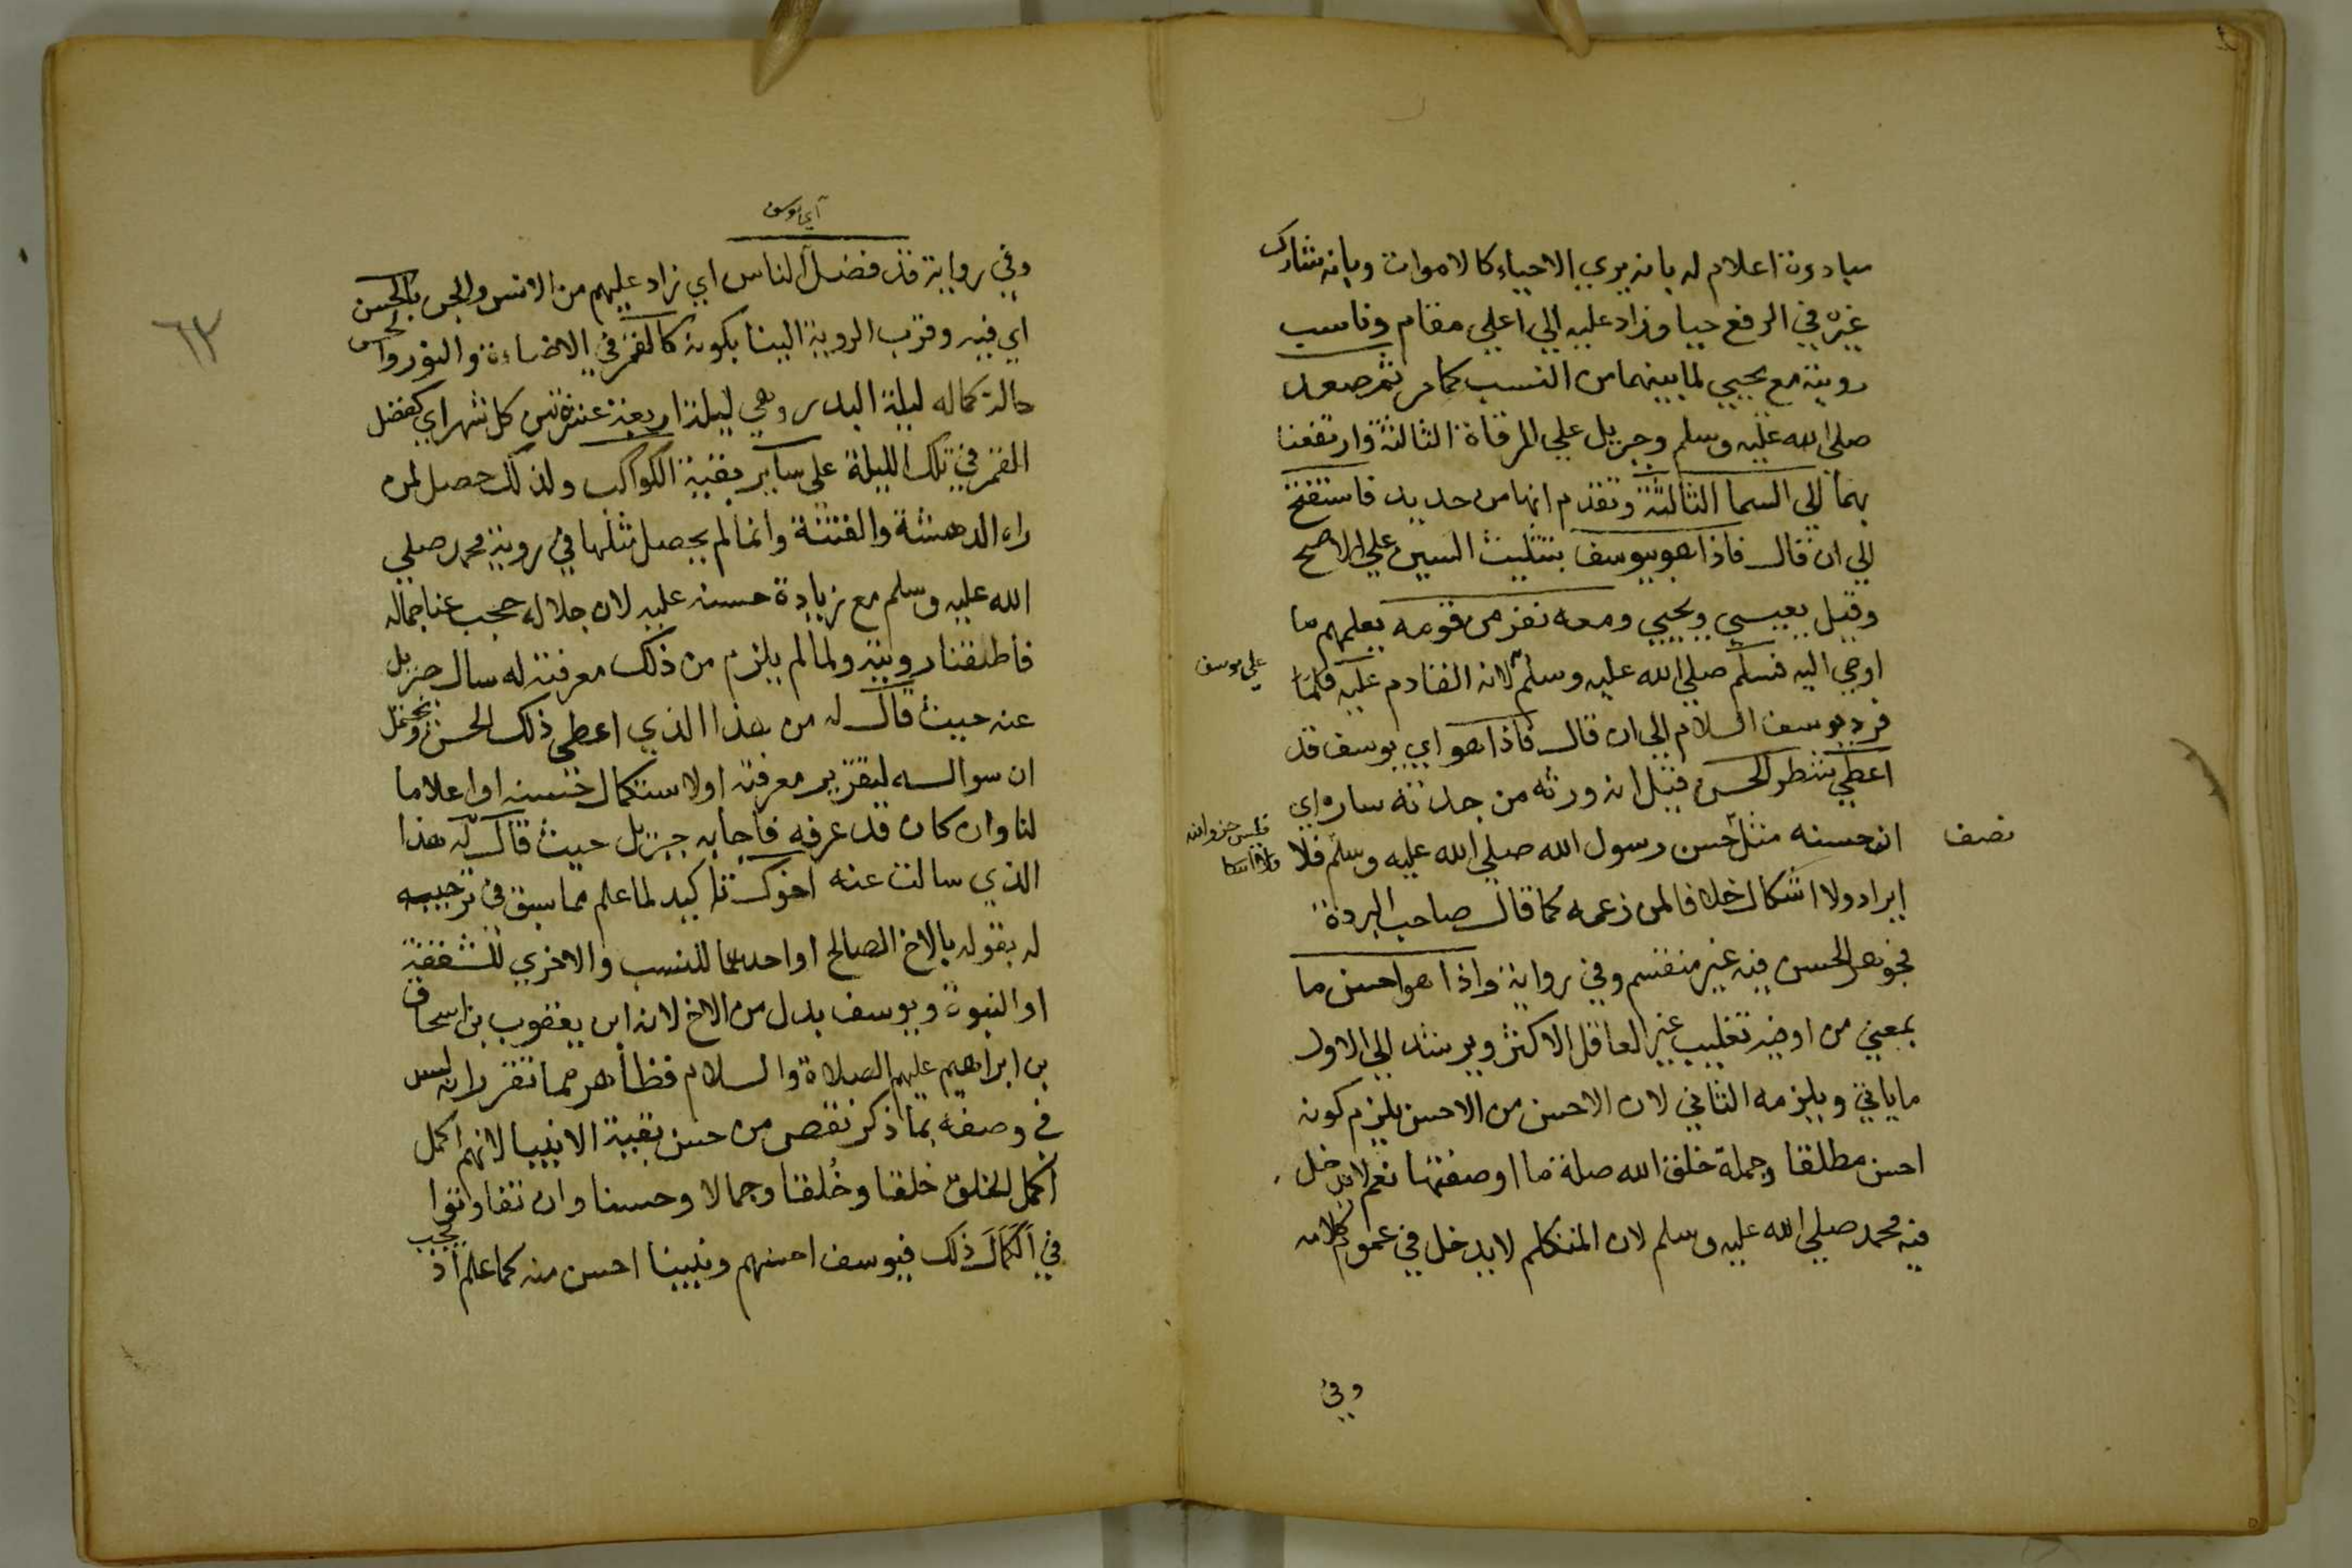 مبادرة اعلام له بانه يري الاحياء كالاموات وبانه شارك
غيره في الرفع حيا وزاد عليه الي اعلي مقام وناسب
رويته مع يحيي لما بينهما من النسب كما مر ثم صعد
صلي الله عليه وسلم وجبريل علي المرقاة الثالثة وارتفعنا
بهما الي السما الثالثة وتقدم انها من حديد فاستفتح
الي ان قال فاذا هو بيوسف بتثليث السين علي الاصح
وقيل بعيسي ويحيي ومعه نفر من قومه يعلمهم ما
اوحي اليه فسلم صلي الله عليه وسلم لانه القادم عليه فلما
علي يوسف
فرد يوسف السلام الي ان قال فاذا هو اي يوسف قد
اعطي شطر الحسن قيل انه ورثه من جدته ساره اي
نصف
ان حسنه مثل حسن رسول الله صلي الله عليه وسلم فلا
ايراد ولا اشكال خلافا لمن زعمه كما قال صاحب البردة
فجوهر الحسن فيه غير منقسم وفي رواية واذا هو احسن ما
بمعني من اوفيه تغليب غير العاقل الاكثر ويرشد الي الاول
ما ياتي ويلزمه الثاني لان الاحسن من الاحسن يلزم كونه
احسن مطلقا وجملة خلق الله صلة ما اوصفتها نعم لا يدخل
فيه محمد صلي الله عليه وسلم لان المتكلم لا يدخل في عموم كلامه
وفي
٦٣
اي يوسف
وفي رواية قد فضل الناس اي زاد عليهم من الانس والجن بالحسن
اي فيه وقرب الروية الينا بكونه كالقمر في الاضاءة والنور والحسن
حالة كماله ليلة البدر وهي ليلة اربعة عشر من كل شهر اي كفضل
القمر في تلك الليلة علي ساير بقية الكواكب ولذلك حصل لمن
راه الدهشة والفتنة وانما لم يحصل مثلها في روية محمد صلي
الله عليه وسلم مع زيادة حسنه عليه لان جلاله حجب عنا جماله
فاطلقنا رويته ولما لم يلزم من ذلك معرفته له سال جبريل
عنه حيث قال له من هذا الذي اعطي ذلك الحسن ويحتمل
ان سواله لتقرير معرفته اولا ستكمال حسنه او اعلاما
لنا وان كان قد عرفه فاجابه جبريل حيث قال له هذا
الذي سالت عنه اخوك تاكيد لما علم مما سبق في ترحيبه
له بقوله بالاخ الصالح او احدهما للنسب والاخري للشفقة
او النبوة ويوسف بدل من الاخ لانه ابن يعقوب بن اسحاق
بن ابراهيم عليهم الصلاة والسلام فظاهر مما تقرر انه ليس
في وصفه بما ذكر نقص من حسن بقية الانبيا لانهم اكمل
اكمل الخلق خلقا وخُلقا وجمالا وحسنا وان تفاوتوا
في اكمال ذلك فيوسف احسنهم ونبينا احسن منه كما علم اذ
يجب